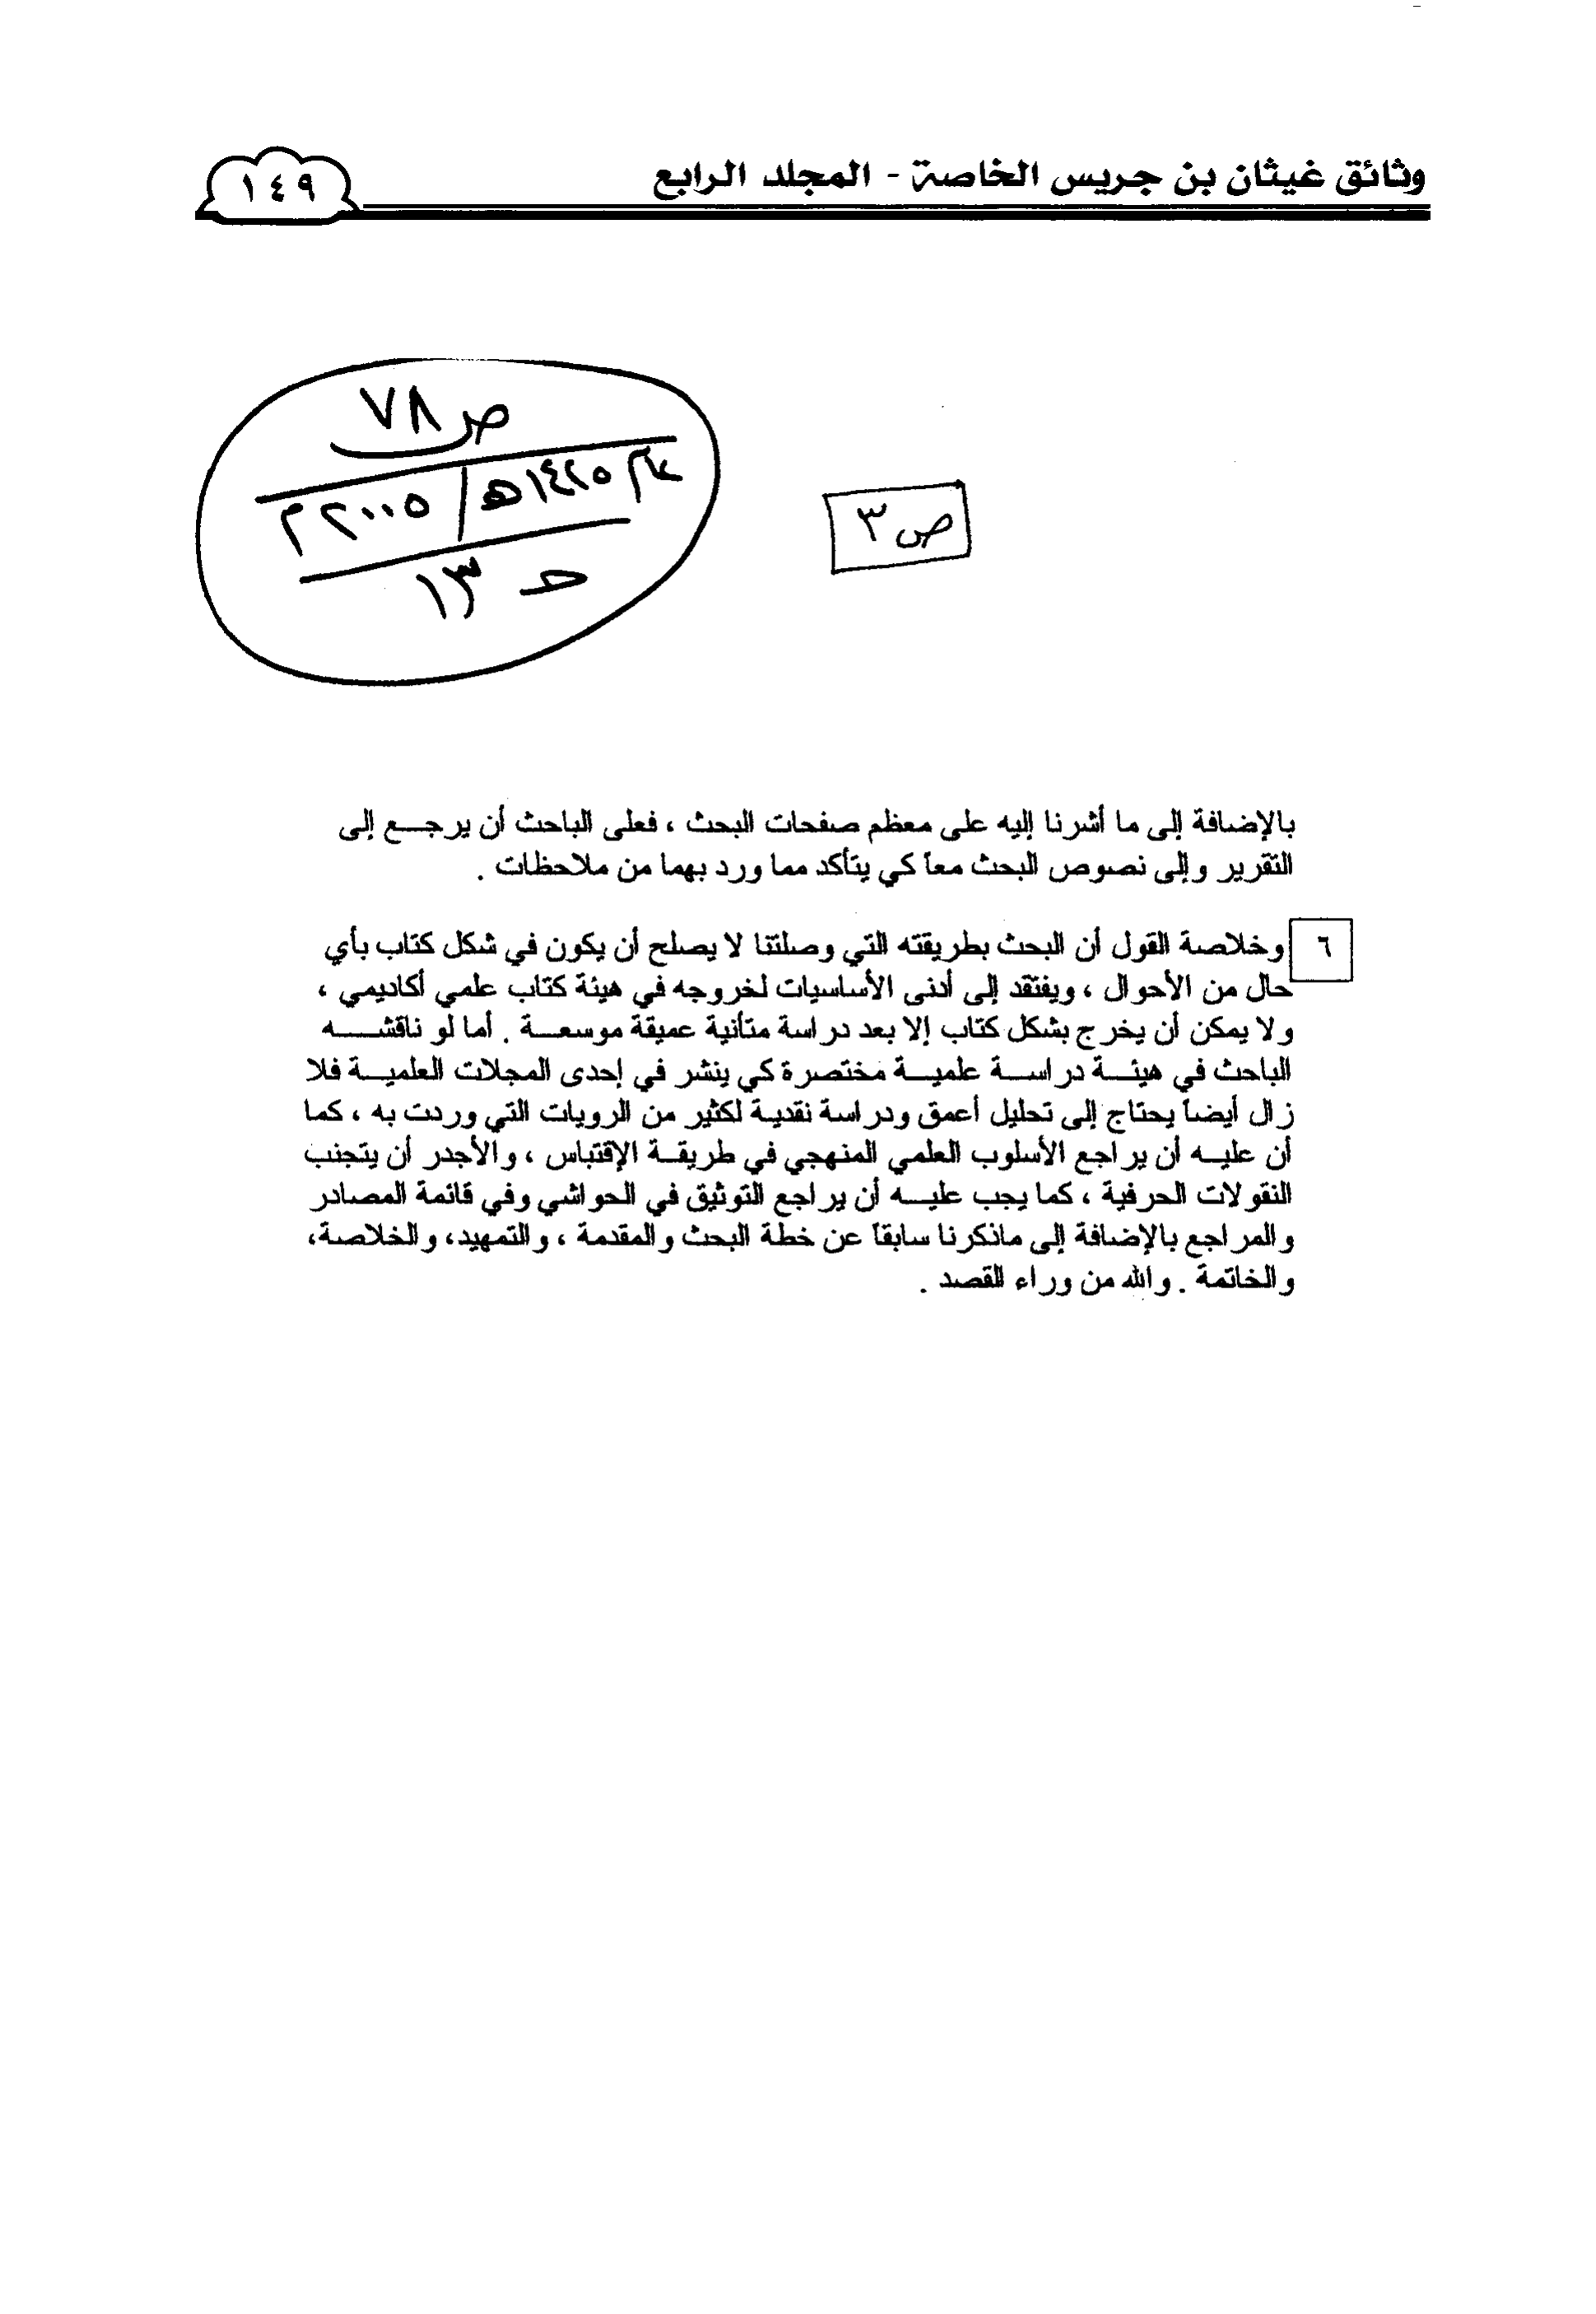 وثائق غيثان بن جريس الخاصة - المجلد الرابع
١٤٩
ص ٧٨
عام ١٤٢٥هـ / ٢٠٠٥م
حـ ١٣
ص ٣
بالإضافة إلى ما أشرنا إليه على معظم صفحات البحث ، فعلى الباحث أن يرجـــع إلى
التقرير وإلى نصوص البحث معاً كي يتأكد مما ورد بهما من ملاحظات .
٦ وخلاصة القول أن البحث بطريقته التي وصلتنا لا يصلح أن يكون في شكل كتاب بأي
حال من الأحوال ، ويفتقد إلى أدنى الأساسيات لخروجه في هيئة كتاب علمي أكاديمي ،
ولا يمكن أن يخرج بشكل كتاب إلا بعد دراسة متأنية عميقة موسعـــة . أما لو ناقشـــه
الباحث في هيئـــة دراســـة علميـــة مختصرة كي ينشر في إحدى المجلات العلميـــة فلا
زال أيضاً يحتاج إلى تحليل أعمق ودراسة نقديـة لكثير من الرويات التي وردت به ، كما
أن عليـــه أن يراجع الأسلوب العلمي المنهجي في طريقـة الإقتباس ، والأجدر أن يتجنب
النقولات الحرفية ، كما يجب عليـــه أن يراجع التوثيق في الحواشي وفي قائمة المصادر
والمراجع بالإضافة إلى ماذكرنا سابقاً عن خطة البحث والمقدمة ، والتمهيد، والخلاصة،
والخاتمة . والله من وراء القصد .